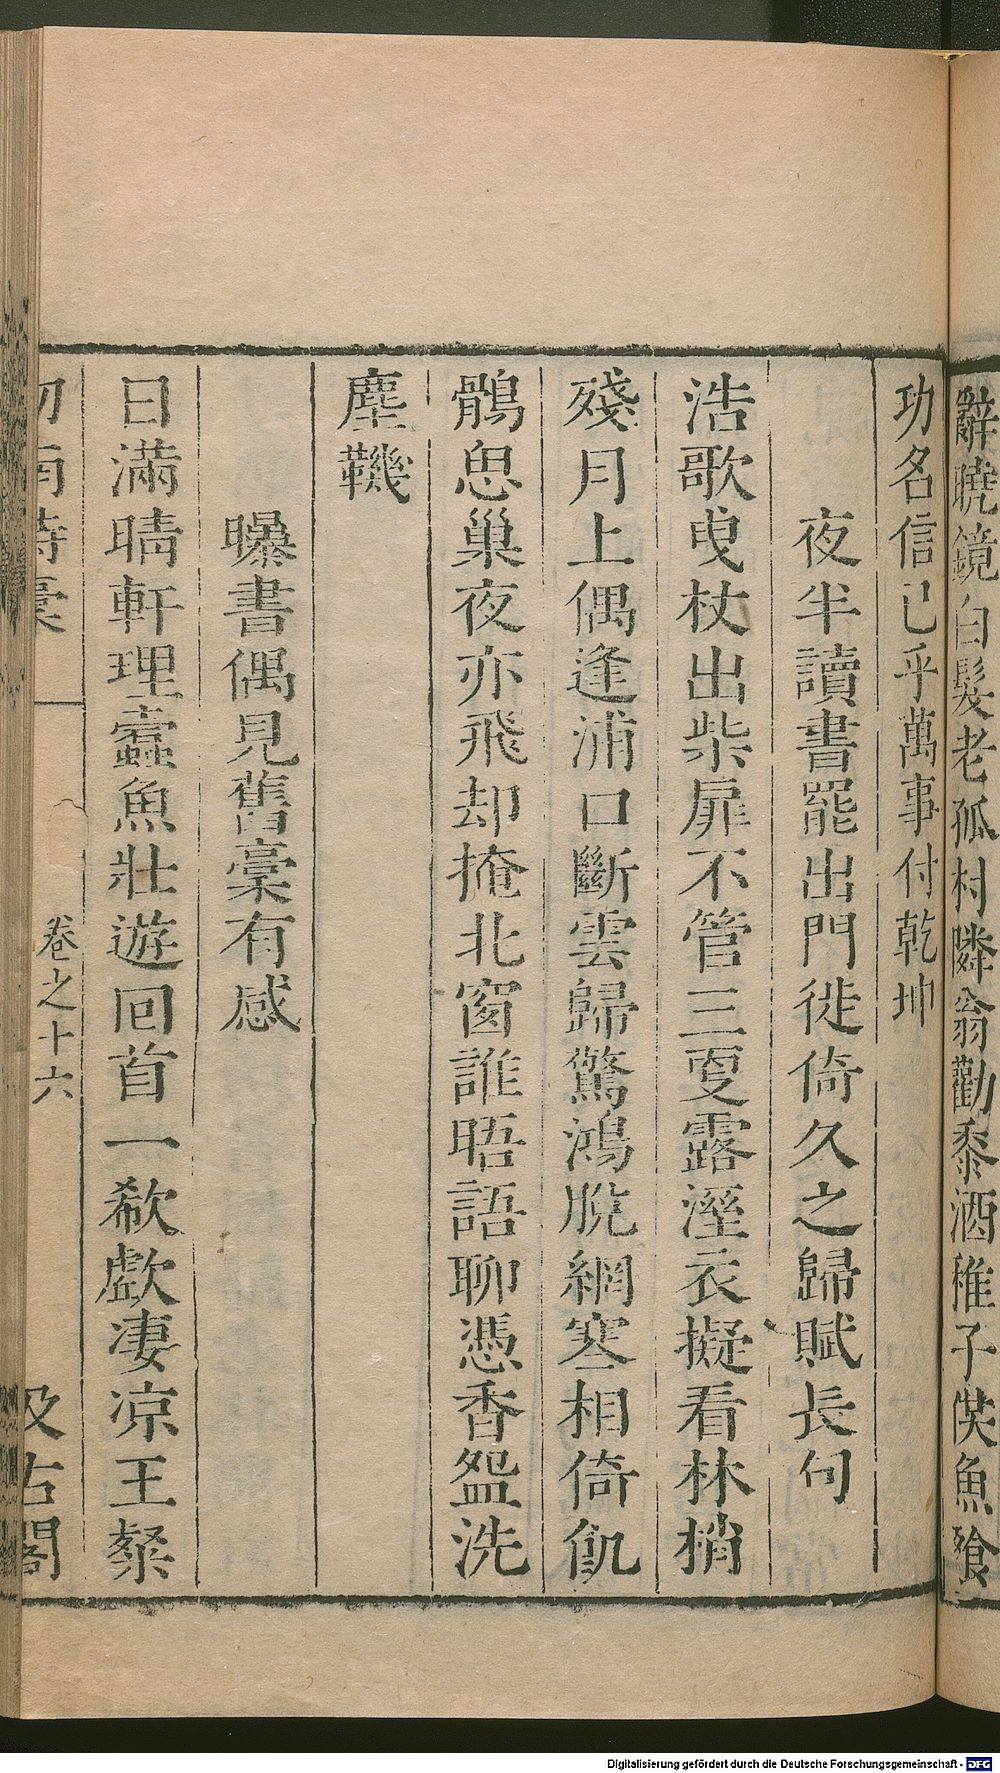 辭曉鏡白髮老孤村隣翁勸黍酒稚子供魚飱
功名信已乎萬事付乾坤
夜半讀書罷出門徙倚久之歸賦長句
浩歌曳杖出柴扉不管三更露溼衣擬看林梢
殘月上偶逢浦口斷雲歸驚鴻脫網寒相倚飢
鶻思巢夜亦飛却掩北窗誰晤語聊憑香盌洗
塵鞿
曝書偶見舊稾有感
日滿晴軒理蠹魚壯遊回首一欷歔凄凉王粲
劒南詩稾
卷之十六
汲古閣
Digitalisierung gefördert durch die Deutsche Forschungsgemeinschaft - DFG